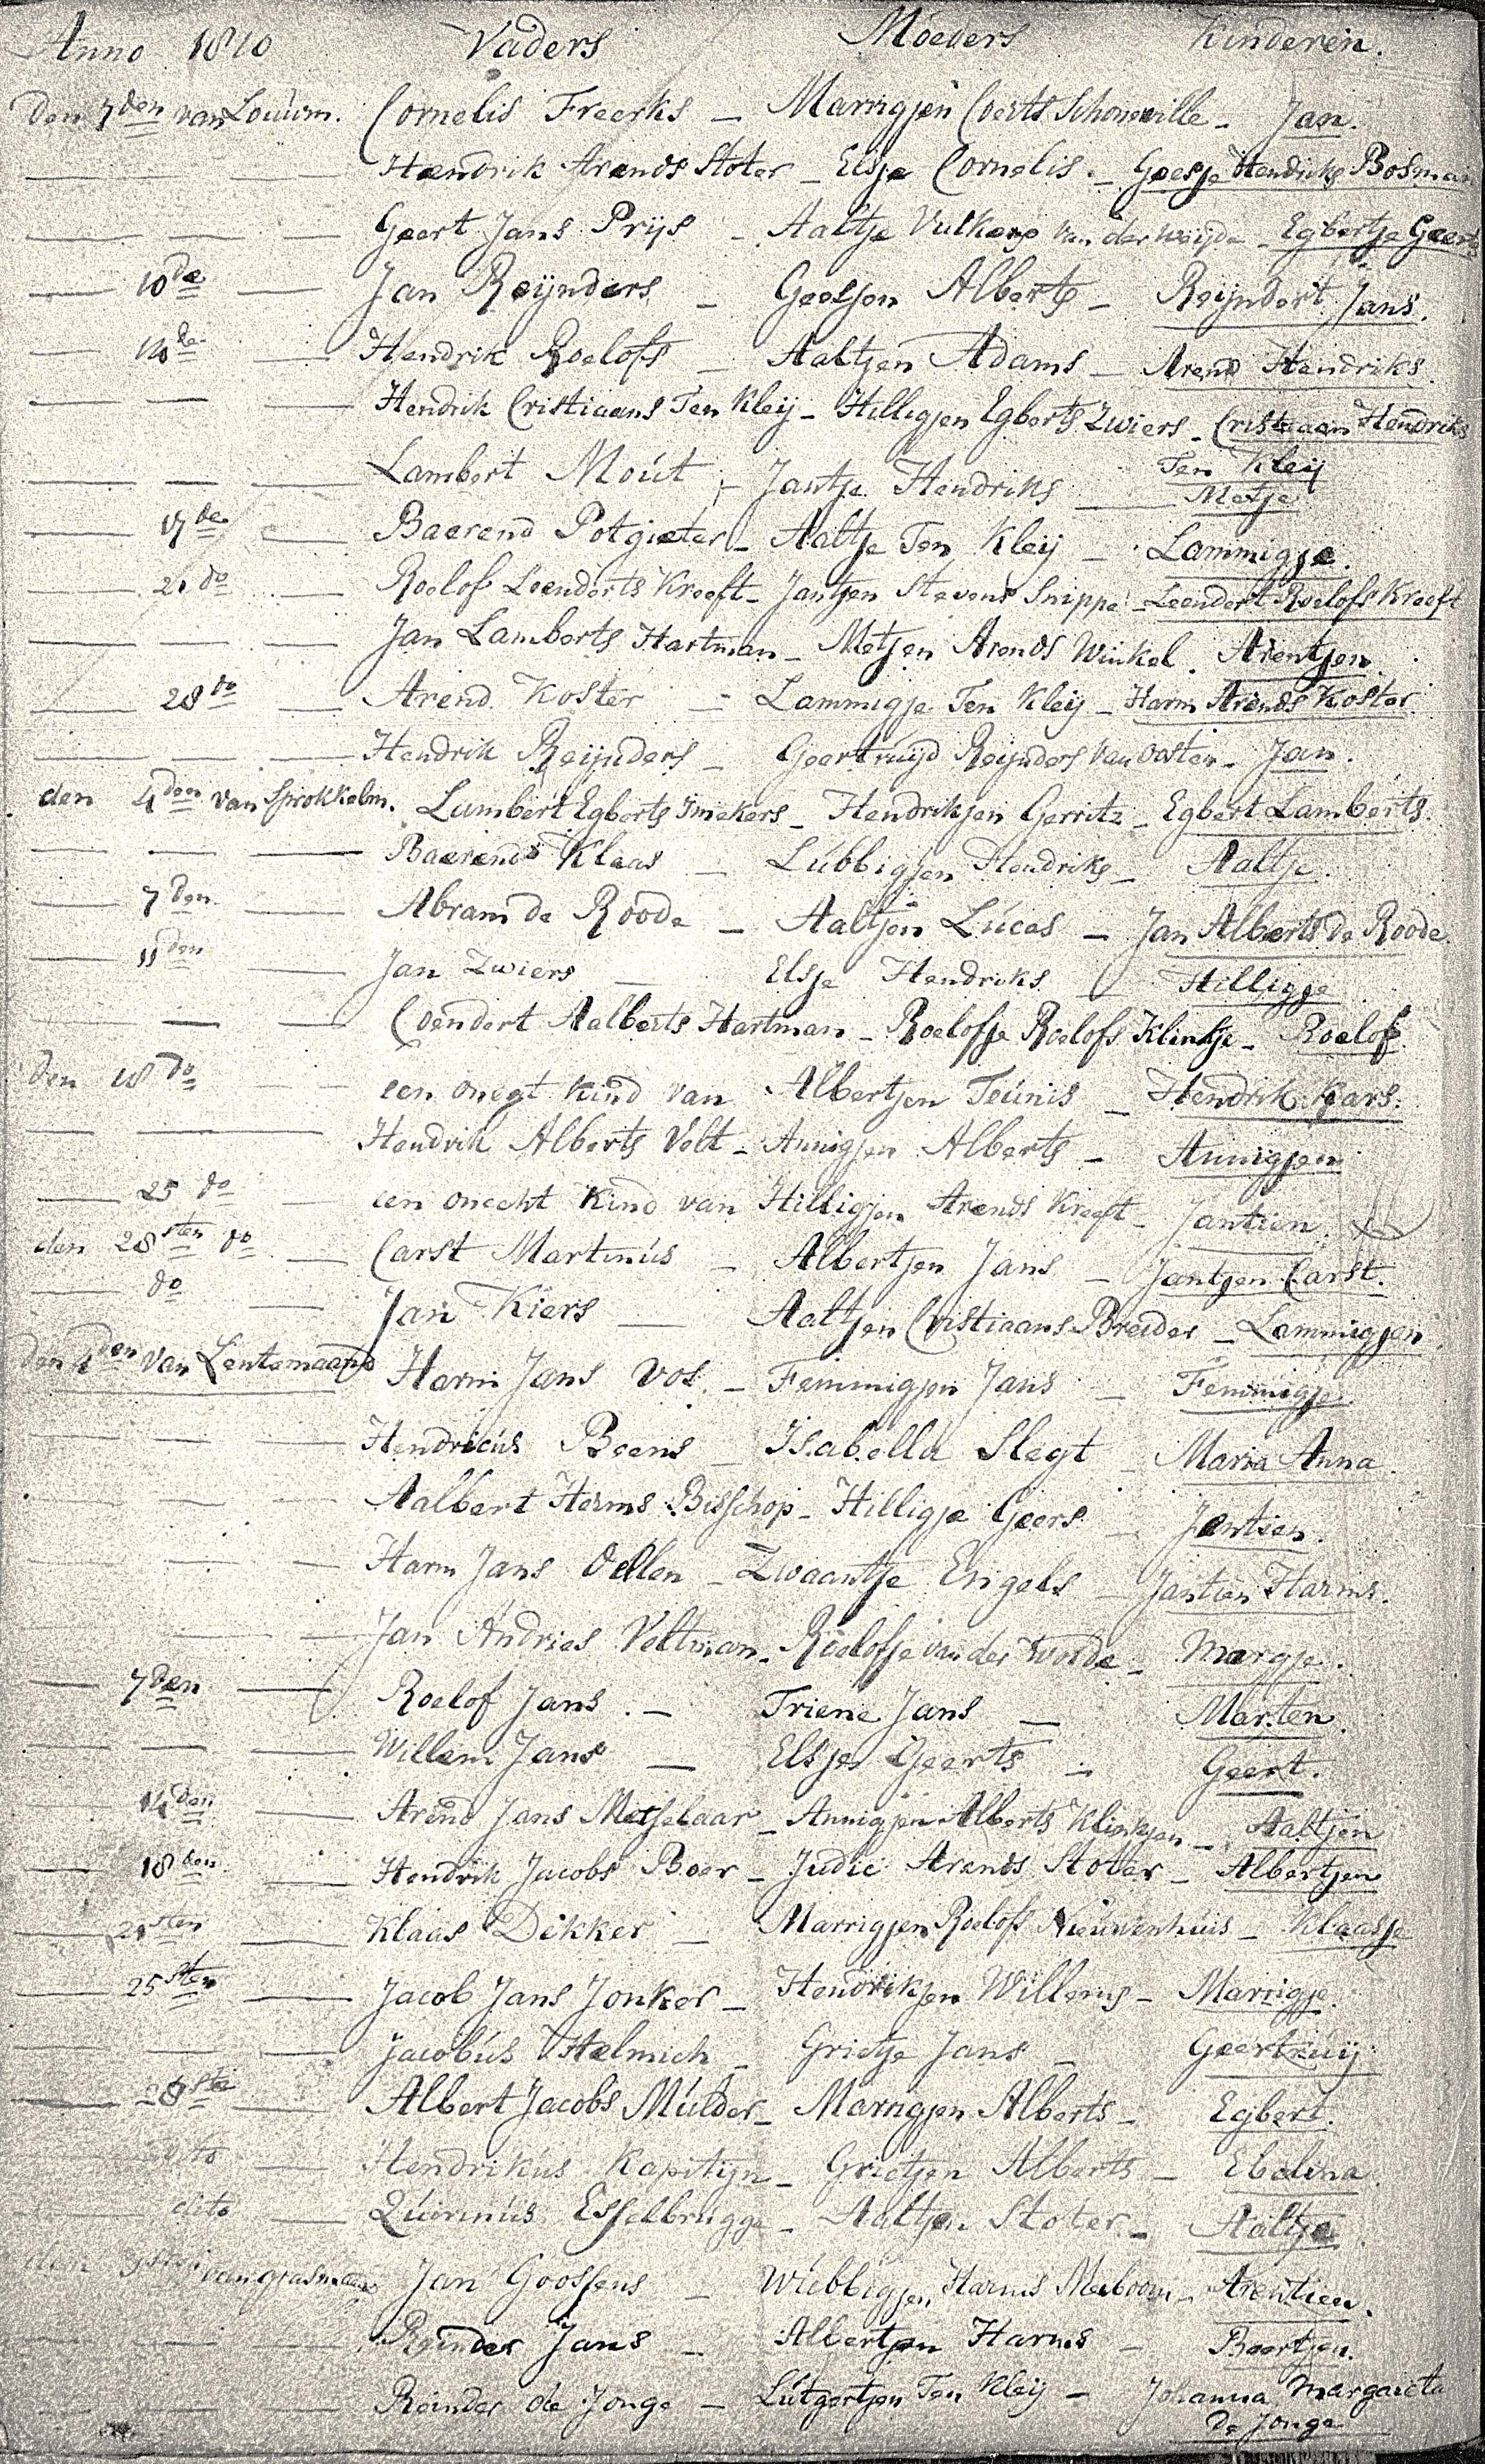 Anno 1810 Vaders Moeders Kinderen.
Den 7den van Louwm. Cornelis Freerks - Marrigjen Coerts Schonewille - Jan.
Hendrik Arends Stoter - Elsje Cornelis - Geesje Hendriks Bosman
Geert Jans Prijs - Aaltje Vulkerp van der Weijde - Egbertje Geerts
10de Jan Reijnders - Geesjen Alberts - Reijndert Jans.
14de Hendrik Roelofs - Aaltjen Adams - Arend Hendriks
Hendrik Cristiaans Ten Kleij - Hilligjen Egberts Zwiers - Cristiaan Hendriks
Ten Kleij
Lambert Moút - Jantje Hendriks - Metje
17de Baerend Potgieter - Aaltje Ten Kleij - Lammigje.
21 do Roelof Leenderts Kreeft - Jantjen Stevens Snippe - Leendert Roelofs Kreeft
Jan Lamberts Hartman - Metjen Arends Winkel. Arentjen
28 do Arend Koster - Lammigje Ten Kleij - Harm Arends Koster
Hendrik Reijnders - Geertruijd Reijnders van Osten - Jan.
den 4den van Sprokkelm. Lambert Egberts Imekers - Hendrikjen Gerritz - Egbert Lamberts.
Baerends Klaas - Lúbbigjen Hendriks - Aaltje.
7den Abram de Roode - Aaltjen Lúcas - Jan Alberts de Roode.
11den Jan Zwiers - Elsje Hendriks - Hilligje
Coendert Aalberts Hartman - Roelofje Roelofs Klinkje - Roelof.
den 18 do een onegt kind van Albertjen Teúnis - Hendrik Kars.
Hendrik Alberts Velt - Annigjen Alberts - Annigjen
25 do een onecht kind van Hilligjen Arends Kreeft - Jantien.
den 28sten do Carst Martinús - Albertjen Jans - Jantjen Carst.
do Jan Kiers - Aaltjen Cristiaans Breider - Lammigjen
den 4den van Lentemaand Harm Jans Vos. - Femmigjen Jans - Femmigje
Hendricús Beens - Isabella Slegt - Maria Anna
Aalbert Harms Bisschop - Hilligje Geers - Jentien.
Harm Jans Oellen - Zwaantje Engels - Jantien Harms.
Jan Andries Veltman - Roelofje van der Worde - Margje.
7den Roelof Jans. - Triene Jans - Marten.
Willem Jans - Elsjen Geerts - Geert.
14den Arend Jans Metselaar - Annigjen Alberts Klinkjen - Aaltjen
18den Hendrik Jacobs Boer - Judic Arends Stoter - Albertjen
21sten Klaas Dekker - Marrigjen Roelofs Nieuwenhuis - Klaasje
25sten Jacob Jans Jonker - Hendrikjen Willems - Marrigje
Jacobús Helmich - Grietje Jans - Geertruij
28ste Albert Jacobs Múlder - Marrigjen Alberts - Egbert.
dito Hendrikús Kapitijn - Grietjen Alberts - Ebelina
dito Qúirinús Esselbrugge - Aaltjen Stoter - Aaltje
den 1sten van grasmaand Jan Goossens - Wúbbigjen Harms Meiboom - Arentien.
Reinder Jans - Albertjen Harms - Beertjen.
Reinder de Jonge - Lútgertjen Ten Kleij - Johanna Margareta
De Jonge